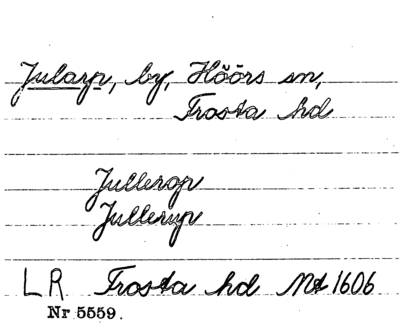 Jularp, by, Höörs sn,
Frosta hd
Jullerop
Jullerup
LR Frosta hd Mt 1606
Nr 5559.